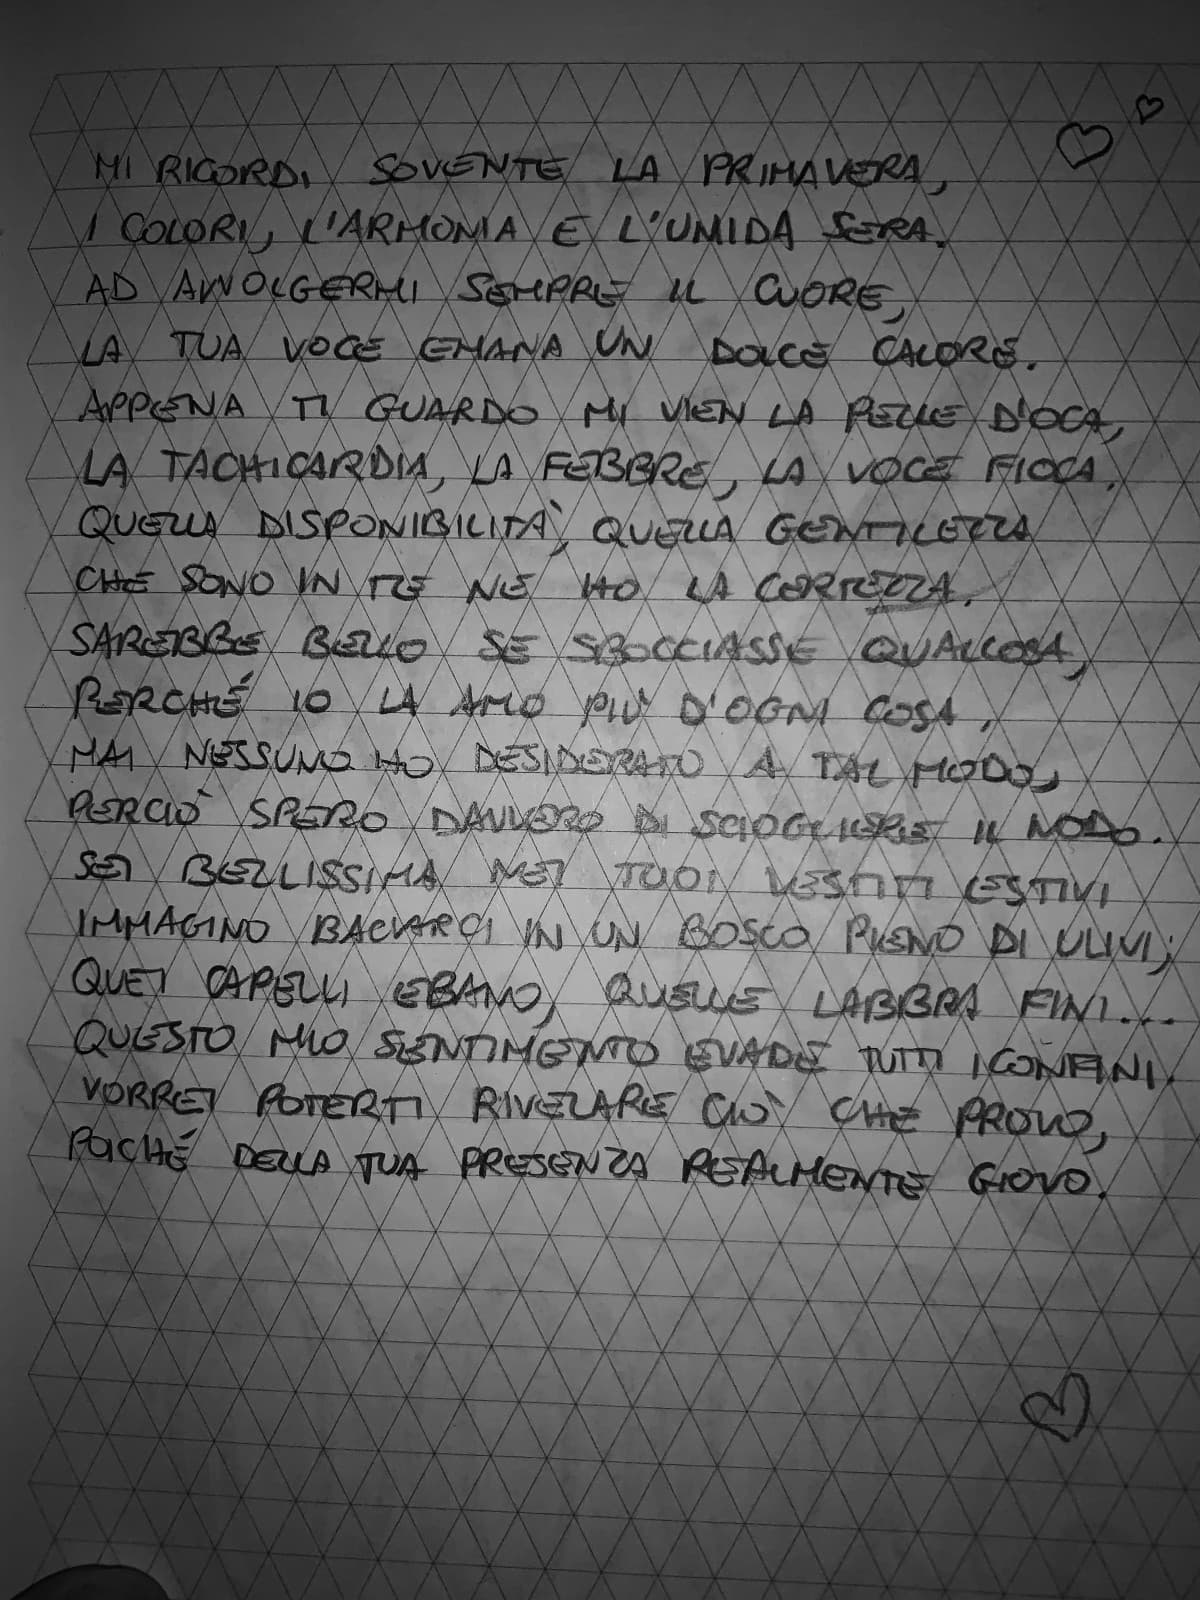 MI RICORDI SOVENTE LA PRIMAVERA,
I COLORI, L'ARMONIA E L'UMIDA SERA.
AD AVVOLGERMI SEMPRE IL CUORE,
LA TUA VOCE EMANA UN DOLCE CALORE.
APPENA TI GUARDO MI VIEN LA PELLE D'OCA,
LA TACHICARDIA, LA FEBBRE, LA VOCE FIOCA.
QUELLA DISPONIBILITÀ, QUELLA GENTILEZZA
CHE SONO IN TE NE HO LA CERTEZZA.
SAREBBE BELLO SE SBOCCIASSE QUALCOSA,
PERCHÉ IO LA AMO PIÙ D'OGNI COSA,
MAI NESSUNO HO DESIDERATO A TAL MODO,
PERCIÒ SPERO DAVVERO DI SCIOGLIERE IL NODO.
SEI BELLISSIMA NEI TUOI VESTITI ESTIVI
IMMAGINO BACIARCI IN UN BOSCO PIENO DI ULIVI;
QUEI CAPELLI EBANO, QUELLE LABBRA FINI...
QUESTO MIO SENTIMENTO EVADE TUTTI I CONFINI.
VORREI POTERTI RIVELARE CIÒ CHE PROVO,
POICHÉ DELLA TUA PRESENZA REALMENTE GIOVO.